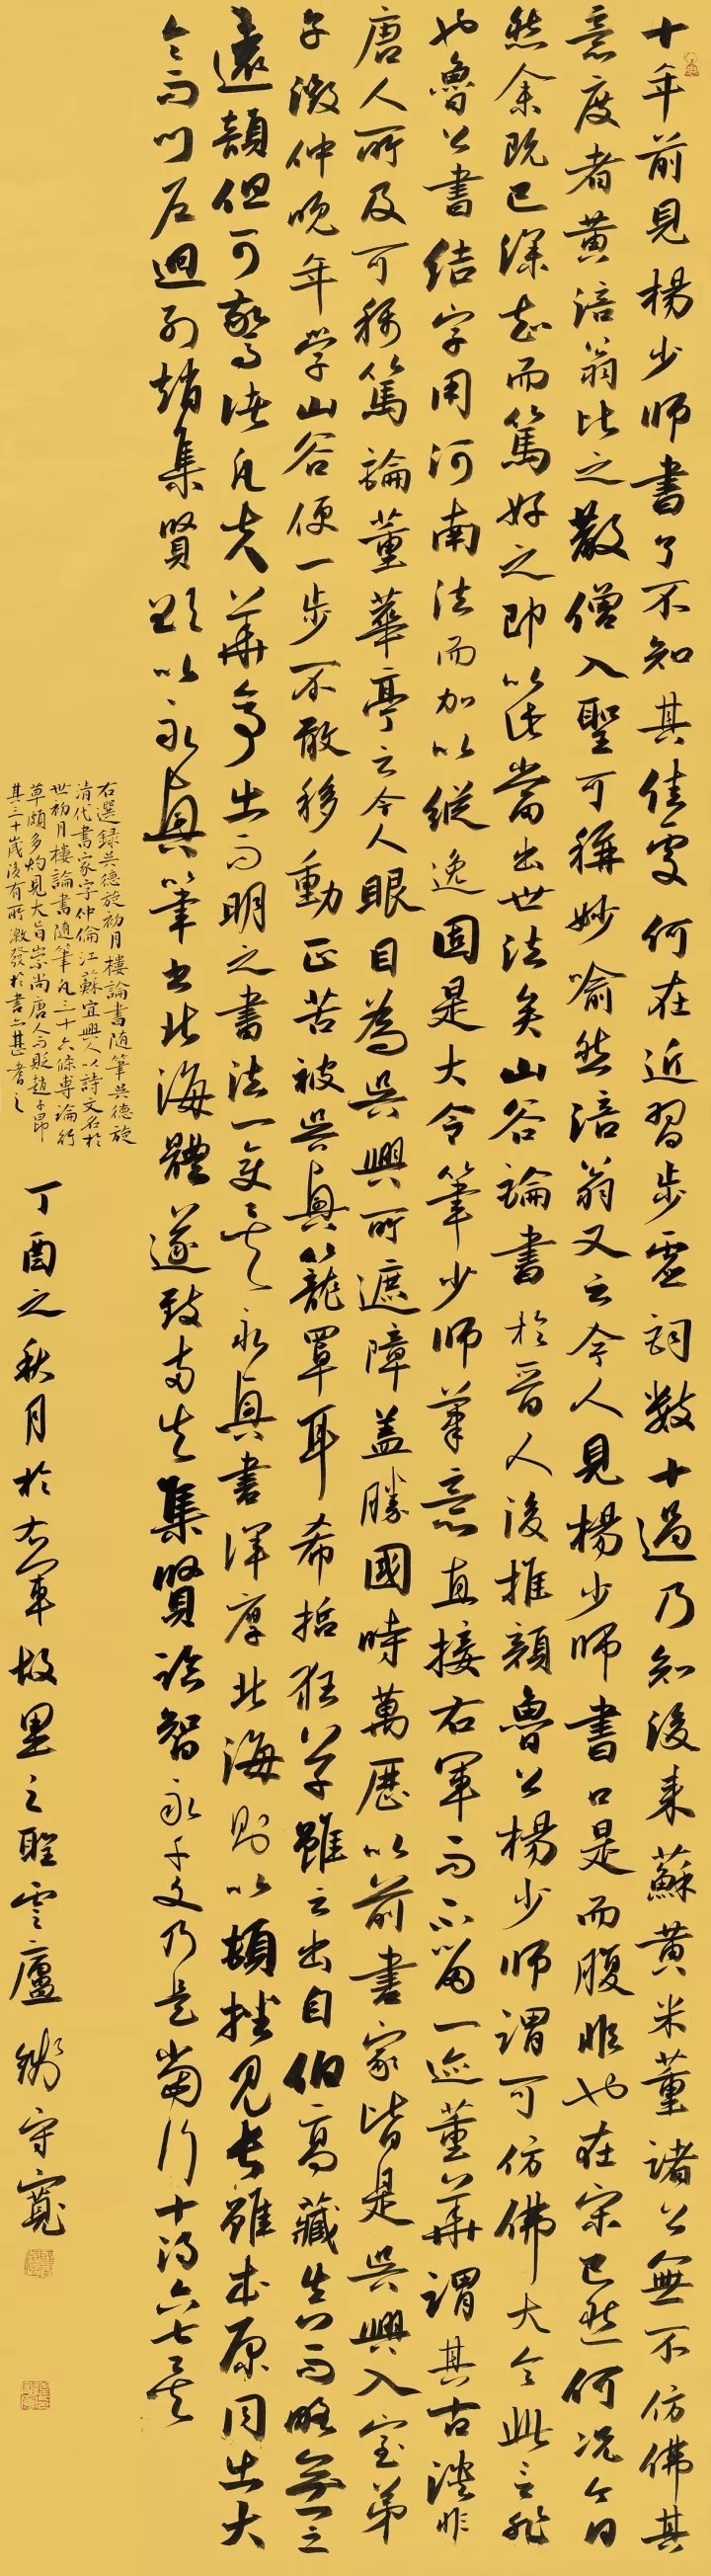 十年前見楊少師書了不知其佳處何在近習步虛詞數十過乃知後來蘇黃米董諸公無不仿佛其
意度者黃涪翁比之散僧入聖可稱妙喻然涪翁又云今人見楊少師書口是而腹非也在宋已然何況今日
然余既已深知而篤好之即以此當出世法矣山谷論書於晉人後推顏魯公楊少師謂可仿佛大令此言非
也魯公書結字用河南法而加以縱逸固是大令筆少師筆意直接右軍而不留一迹董華謂其古淡非
唐人所及可稱篤論董華亭云今人眼目為吳興所遮障蓋勝國時萬歷以前書家皆是吳興入室弟
子徵仲晚年學山谷便一步不敢移動正苦被吳興籠罩耳希哲狂草雖云出自伯高藏真而略無一之
遠韻但可驚諸凡夫華亭出而明之書法一變矣永興書渾厚北海則以頓挫見長雖本原同出大
令而門戶迥別趙集賢欲以永興筆書北海體遂致兩失集賢臨智永千文乃是當行十得六七矣
右選錄吳德旋初月樓論書隨筆吳德旋
清代書家字仲倫江蘇宜興人以詩文名於
世初月樓論書隨筆凡三十六條專論行
草頗多灼見大旨崇尚唐人而貶趙子昂
其三十歲後有所激發於書亦甚耆之
丁酉之秋月於右軍故里之聽雲廬 守寬